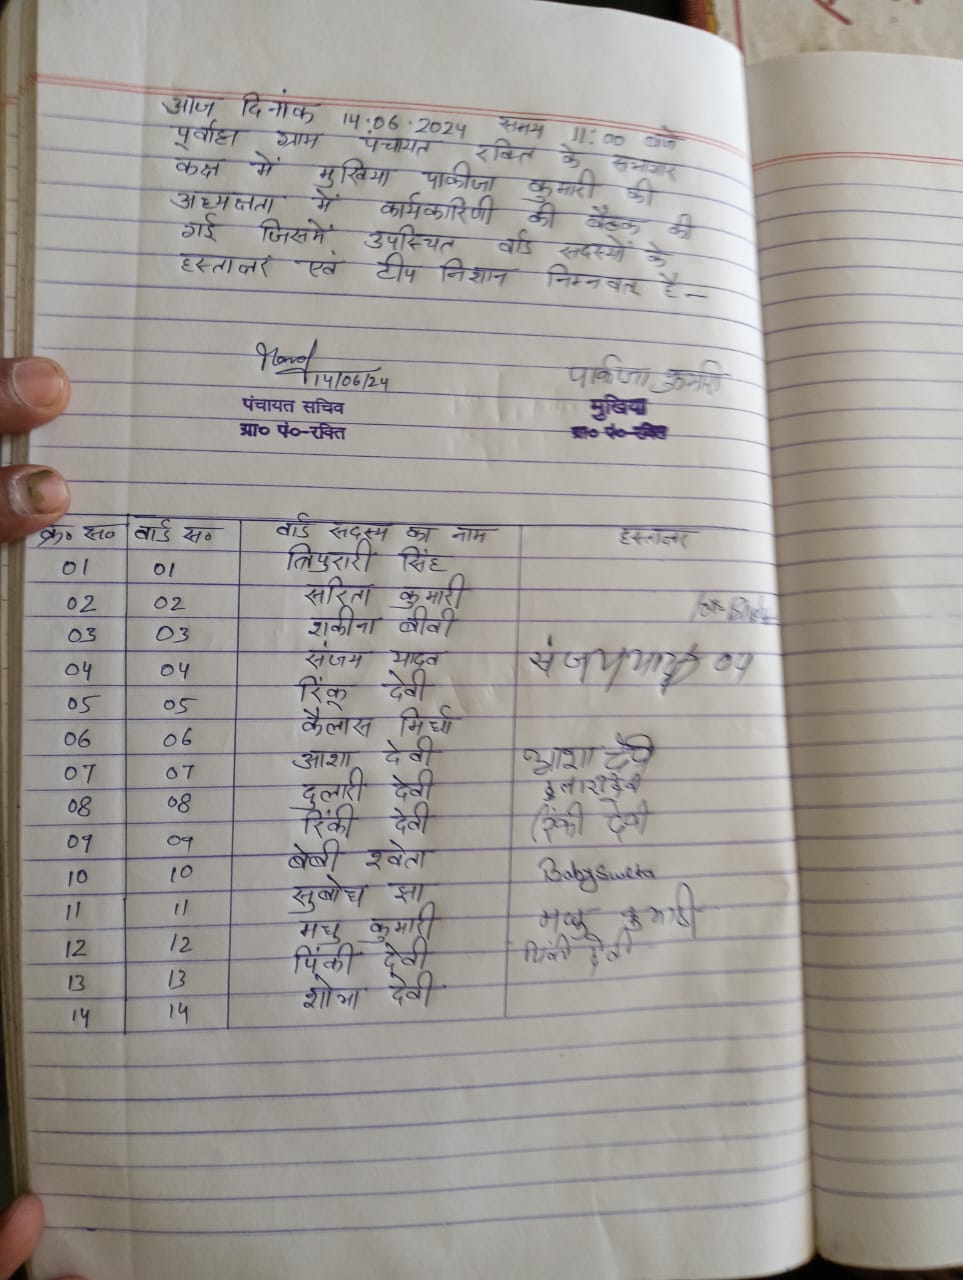 आज दिनांक 14.06.2024 समय 11:00 बजे
पूर्वाह्न ग्राम पंचायत रक्ति के सभागार
कक्ष में मुखिया पाकीजा कुमारी की
अध्यक्षता में कार्यकारिणी की बैठक की
गई जिसमें उपस्थित वार्ड सदस्यों के
हस्ताक्षर एवं टीप निशान निम्नवत् है –
14/06/24
पाकीजा कुमारी
पंचायत सचिव
मुखिया
ग्रा० पं०-रक्ति
ग्रा० पं०-रक्ति
क्र० स० वार्ड स० वार्ड सदस्य का नाम हस्ताक्षर
01 01 त्रिपुरारी सिंह
02 02 सरिता कुमारी
03 03 शकीना बीवी
04 04 संजय यादव संजय यादव 04
05 05 रिंकू देवी
06 06 कैलास मिर्धा
07 07 आशा देवी आशा देवी
08 08 दुलारी देवी दुलारी देवी
09 09 रिंकी देवी रिंकी देवी
10 10 बेबी श्वेता Baby Sweta
11 11 सुबोध झा
12 12 मधु कुमारी मधु कुमारी
13 13 पिंकी देवी पिंकी देवी
14 14 शोभा देवी